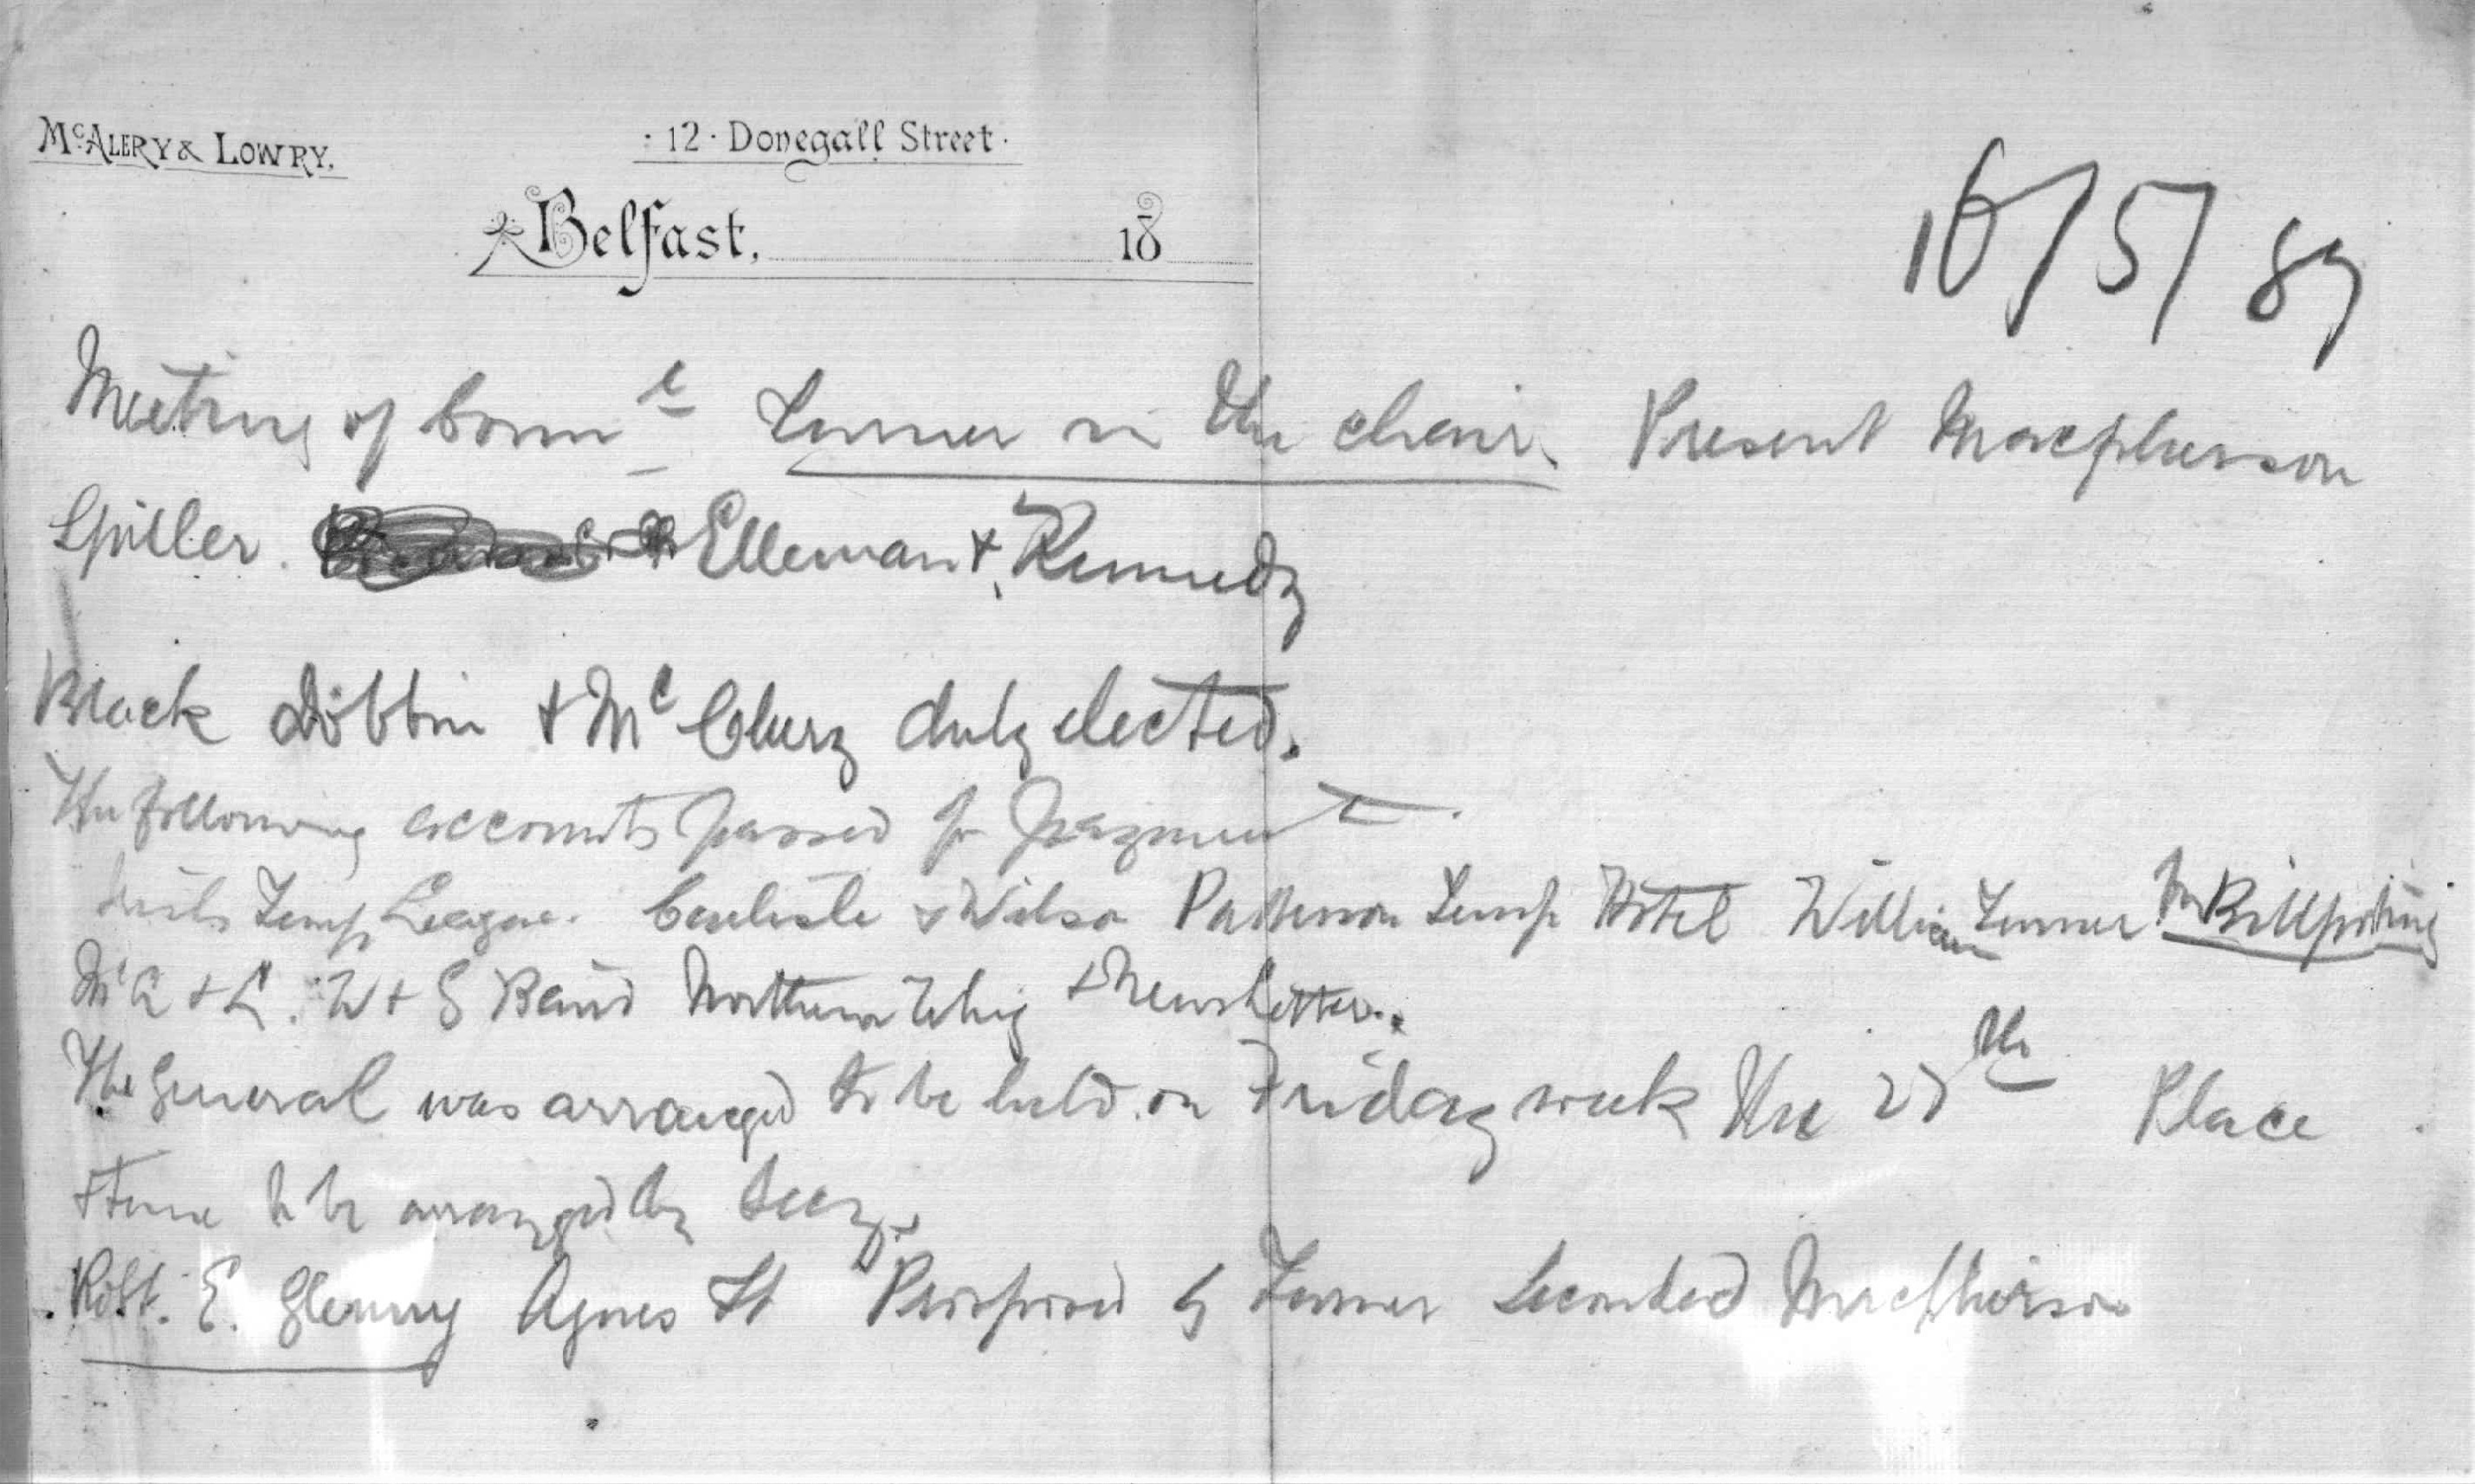 McALERY & LOWRY.
· 12 · Donegall Street ·
Belfast, 18
16/5/89
Meeting of Comm e Turner in the chair. Present Macpherson
Spiller. Elleman & Kennedy
Black Dobbin & Mc Clurg duly elected.
The following accounts passed for payment.
Irish Temp League. Carlisle & Wilson Patterson Temp Hotel William Turner for Billposting
McA & L. W & G Baird Northern Whig & News Letter.
The General was arranged to be held on Friday week the 27th Place
& time to be arranged by Secy.
Robt. E. Glenny Agnes St Proposed by Turner Seconded Macpherson